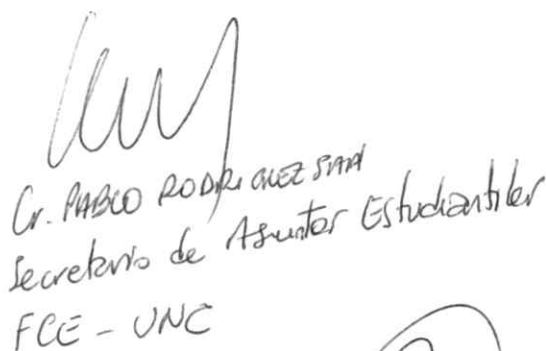 Cr. PABLO RODRIGUEZ
Secretario de Asuntos Estudiantiles
FCE - UNC